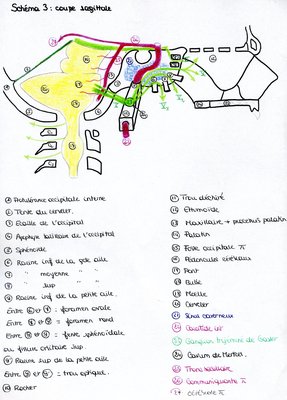 Schéma 3 : coupe sagittale
① Protubérance occipitale interne
② Tente du cervelet.
③ Écaille de l'occipital
④ Apophyse basilaire de l'occipital
⑤ Sphénoïde
⑥ Racine inf de la gde aile
⑦ " moyenne " "
⑧ " sup " "
⑨ Racine inf de la petite aile.
Entre ⑥ et ⑦ : foramen ovale
Entre ⑦ et ⑧ : foramen rond
Entre ⑧ et ⑨ : fente sphénoïdale
ou fissure orbitaire sup.
Racine sup de la petite aile
Entre et : trou optique.
Rocher
Trou déchiré
Ethmoïde
Maxillaire → processus palatin
Palatin
Fosse occipitale
Pédoncules cérébraux
Pont
Bulbe
Moelle
Cervelet
Sinus caverneux
Carotide
Ganglion trijumeau de Gasser
Cavum de Meckel.
Tronc basilaire
Communiquante
cérébrale